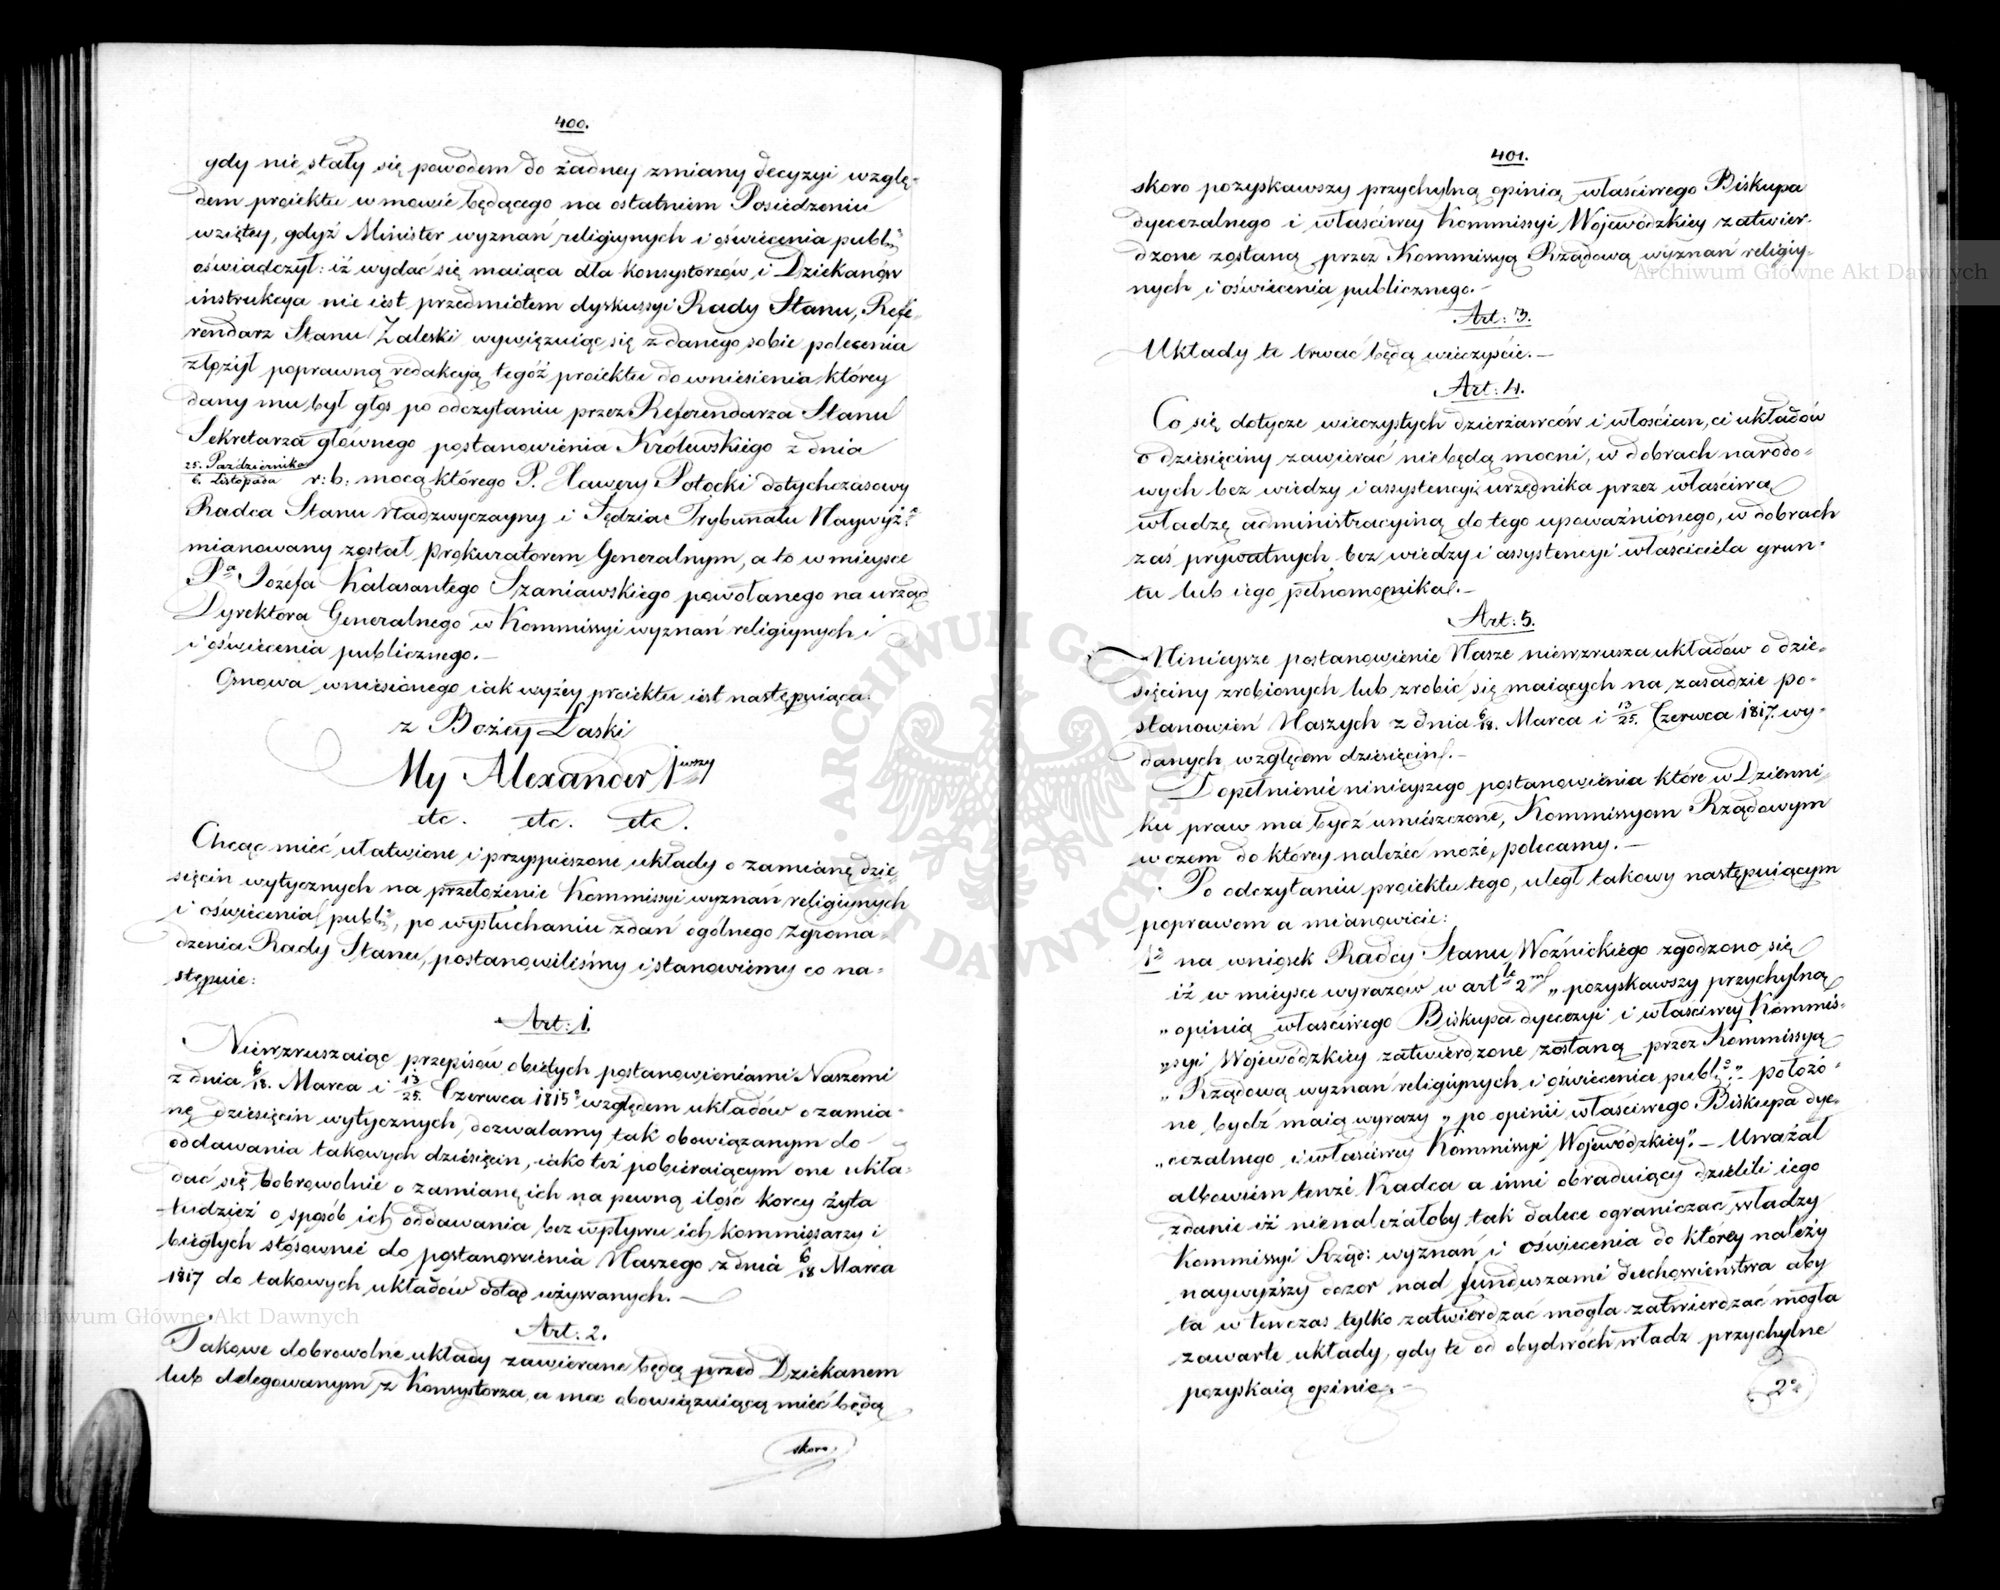 400.
gdy nie stały się powodem do żadney zmiany decyzyi wzglę-
dem proiektu w mowie będącego na ostatniem Posiedzeniu
wziętey, gdyż Minister wyznań religiynych i oświecenia publ:
oświadczył: iż wydać się maiąca dla konsystorzów i Dziekanów
instrukcya nie iest przedmiotem dyskussyi Rady Stanu, Refe-
rendarz Stanu Zaleski wywięzuiąc się z danego sobie polecenia
złożył poprawną redakcyą tegoż proiektu do wniesienia którey
dany mu był głos po odczytaniu przez Referendarza Stanu
Sekretarza głównego postanowienia Krolewskiego z dnia
25. Października
6. Listopada r: b: mocą którego P. Xawery Potocki dotychczasowy
Radca Stanu Nadzwyczayny i Sędzia Trybunału Naywyż:
mianowany został Prokuratorem Generalnym, a to w mieysce
Pa Józefa Kalasantego Szaniawskiego powołanego na urząd
Dyrektora Generalnego w Kommissyi wyznań religiynych i
i oświecenia publicznego.—
Osnowa wniesionego iak wyżey proiektu iest następuiąca:
z Bożey Łaski
My Alexander Iwszy
etc. etc. etc.
Chcąc mieć ułatwione i przyspieszone układy o zamianę dzie-
sięcin wytycznych na przełożenie Kommissyi wyznań religiynych
i oświecenia publ:, po wysłuchaniu zdań ogólnego Zgroma-
dzenia Rady Stanu, postanowiliśmy i stanowiemy co na-
stępuie:
Art: 1.
Niewzruszaiąc przepisów obiętych postanowieniami Naszemi
z dnia 6/18. Marca i 13/25. Czerwca 1815o względem układów o zamia-
nę dziesięcin wytycznych, dozwalamy tak obowiązanym do
oddawania takowych dziesięcin, iako też pobieraiącym one ukła-
dać się dobrowolnie o zamianę ich na pewną ilość korcy żyta
tudzież o sposób ich oddawania bez wpływu ich kommissarzy i
biegłych stósownie do postanowienia Naszego z dnia 6/18 Marca
1817 do takowych układów dotąd używanych.—
Art: 2.
Takowe dobrowolne układy zawierane będą przed Dziekanem
lub delegowanym z Konsystorza, a moc obowiązuiącą mieć będą
skoro
401.
skoro pozyskawszy przychylną opinią właściwego Biskupa
dyecezalnego i właściwey Kommissyi Wojewódzkiey zatwier-
dzone zostaną przez Kommissyą Rządową wyznań religiy-
nych i oświecenia publicznego.—
Art: 3.
Układy te trwać będą wieczyście.—
Art: 4.
Co się dotycze wieczystych dzierżawców i włościan, ci układów
o dziesięciny zawierać nie będą mocni, w dobrach narodo-
wych bez wiedzy i assystencyi urzędnika przez właściwą
władzę administracyiną do tego upoważnionego, w dobrach
zaś prywatnych bez wiedzy i assystencyi właściciela grun-
tu lub iego pełnomocnika.—
Art: 5.
Ninieysze postanowienie Nasze niewzrusza układów o dzie-
sięciny zrobionych lub zrobić się maiących na zasadzie po-
stanowień Naszych z dnia 6/18. Marca i 13/25. Czerwca 1817. wy-
danych względem dziesięcin.—
Dopełnienie ninieyszego postanowienia które w Dzienni-
ku praw ma bydź umieszczone, Kommissyom Rządowym
w czem do którey należeć może, polecamy.—
Po odczytaniu proiektu tego, uległ takowy następuiącym
poprawom a mianowicie:
1o na wniosek Radcy Stanu Woźnickiego zgodzono się
iż w mieysce wyrazów w artle 2m „pozyskawszy przychylną
„opinią właściwego Biskupa dyecezyi i właściwey Kommis-
„syi Wojewódzkiey zatwierdzone zostaną przez Kommissyą
„Rządową wyznań religiynych i oświecenia publ:” położo-
ne bydź maią wyrazy „po opinii właściwego Biskupa dye-
„cezalnego i właściwey Kommissyi Wojewódzkiey”.— Uważał
albowiem tenże Radca a inni obraduiący dzielili iego
zdanie iż nienależałoby tak dalece ograniczać władzy
Kommissyi Rząd: wyznań i oświecenia do którey należy
naywyższy dozor nad funduszami duchowieństwa aby
ta w tenczas tylko zatwierdzać mogła zatwierdzać mogła
zawarte układy, gdy te od obydwóch władz przychylne
pozyskaią opinie.—
2o
Archiwum Główne Akt Dawnych
Archiwum Główne Akt Dawnych
ARCHIWUM GŁÓWNE AKT DAWNYCH